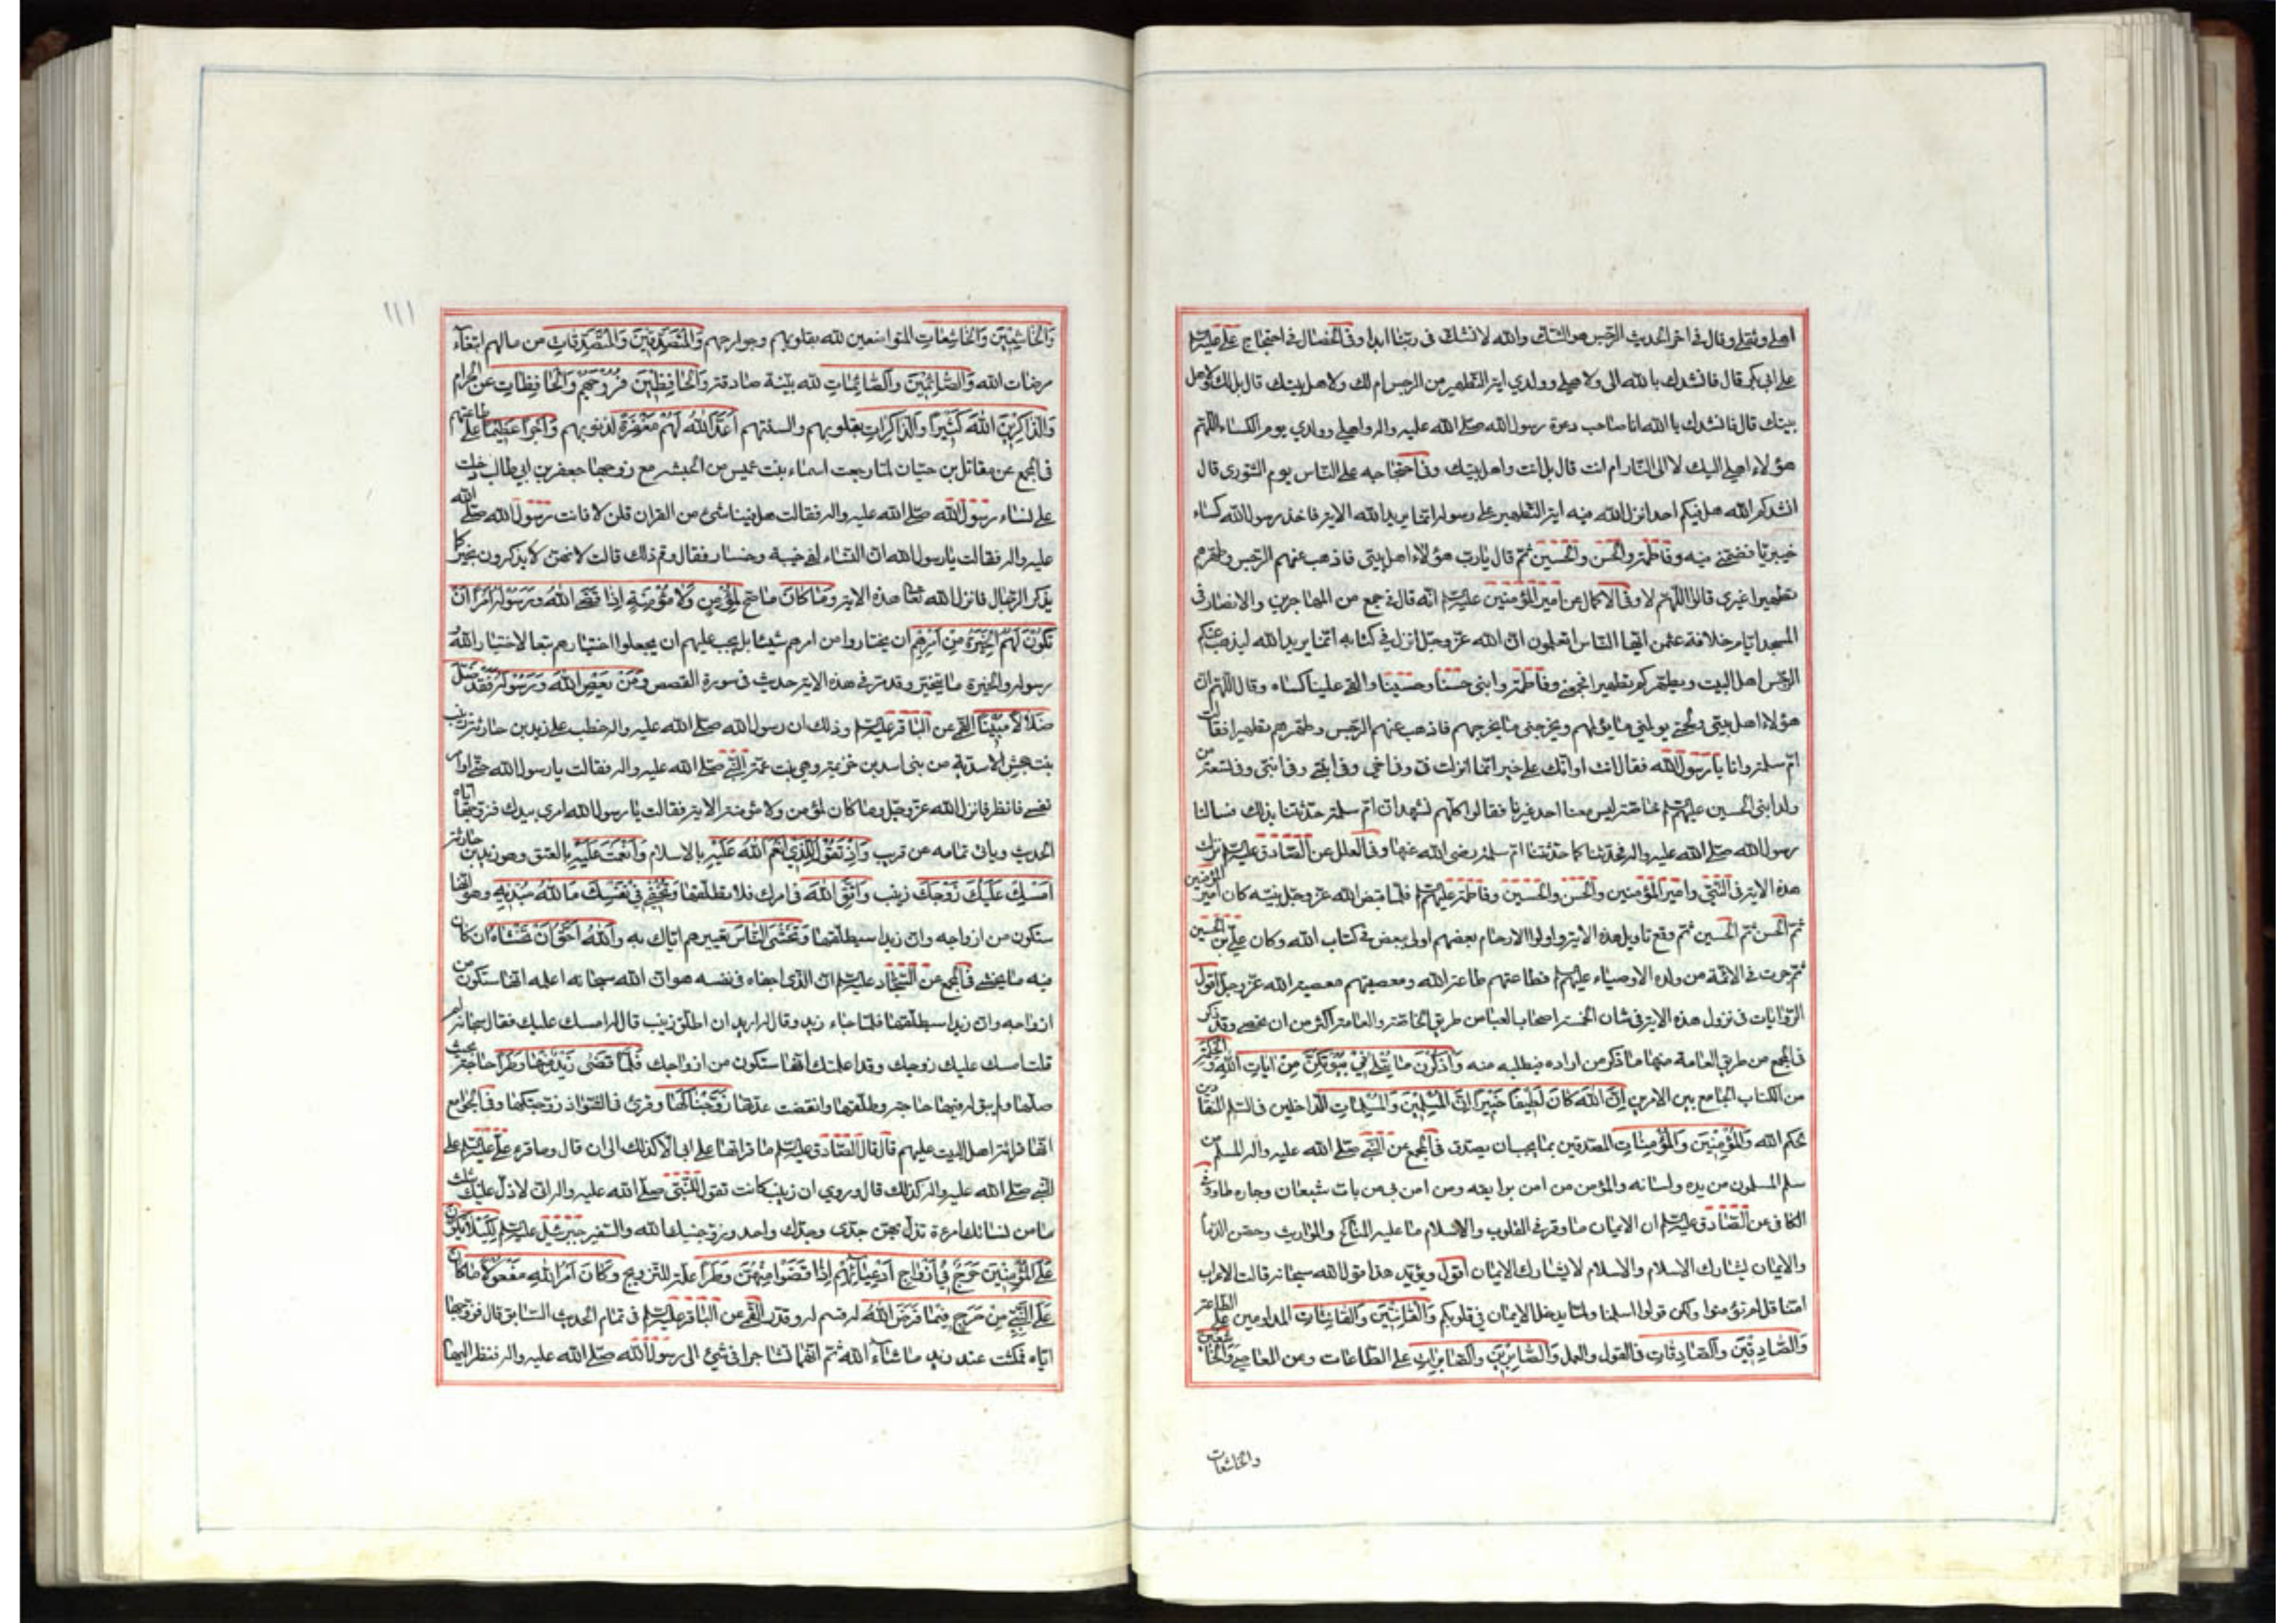 اهلي وثقلي وقال في اخر الحديث الرجس هو الشك والله لا نشك في ربنا ابدا وفي الخصال في احتجاج علي عليه السلم
على ابي بكر قال فانشدك بالله الي ولاهلي وولدي اية التطهير من الرجس ام لك ولاهل بيتك قال بل لك ولاهل
بيتك قال فانشدك بالله انا صاحب دعوة رسول الله صلى الله عليه واله واهلي وولدي يوم الكساء اللهم
هؤلاء اهلي اليك لا الى النار ام انت قال بل انت واهل بيتك وفي احتجاجه على الناس يوم الشورى قال
انشدكم الله هل فيكم احد انزل الله فيه اية التطهير على رسوله انما يريد الله الاية فاخذ رسول الله كساء
خيبريا فضمني فيه وفاطمة والحسن والحسين ثم قال يا رب هؤلاء اهل بيتي فاذهب عنهم الرجس وطهرهم
تطهيرا غيري قالوا اللهم لا وفي الاكمال عن امير المؤمنين عليه السلم انه قال في جمع من المهاجرين والانصار في
المسجد ايام خلافة عثمن ايها الناس اتعلمون ان الله عز وجل انزل في كتابه انما يريد الله ليذهب عنكم
الرجس اهل البيت ويطهركم تطهيرا فجمعني وفاطمة وابني حسنا وحسينا والقى علينا كساه وقال اللهم ان
هؤلاء اهل بيتي ولحمتي يولمني ما يؤلمهم ويخرجني ما يخرجهم فاذهب عنهم الرجس وطهرهم تطهيرا فقالت
ام سلمة وانا يا رسول الله فقال انت او انك على خير انما انزلت في وفي اخي وفي ابنتي وفي ابني وفي تسعة من
ولد ابني الحسين عليهم السلم خاصة ليس معنا احد غيرنا فقالوا كلهم نشهد ان ام سلمة حدثتنا بذلك فسالنا
رسول الله صلى الله عليه واله فحدثنا كما حدثتنا ام سلمة رضي الله عنها وفي العلل عن الصادق عليه السلم نزلت
هذه الاية في النبي وامير المؤمنين والحسن والحسين وفاطمة عليهم السلم فلما قبض الله عز وجل نبيه كان امير المؤمنين
ثم الحسن ثم الحسين ثم وقع تاويل هذه الاية واولوا الارحام بعضهم اولى ببعض في كتاب الله وكان علي بن الحسين
ثم جرت في الائمة من ولده الاوصياء عليهم السلم فطاعتهم طاعة الله ومعصيتهم معصية الله عز وجل اقول
الروايات في نزول هذه الاية في شان الخمسة اصحاب العباء من طريق الخاصة والعامة اكثر من ان تحصى وقد ذكر
في المجمع من طريق العامة منها ما ذكر من اراده فيطلبه منه وَاذْكُرْنَ مَا يُتْلَى فِي بُيُوتِكُنَّ مِنْ اٰيَاتِ اللهِ وَالْحِكْمَةِ
من الكتاب الجامع بين الامرين اِنَّ اللهَ كَانَ لَطِيفًا خَبِيرًا اِنَّ الْمُسْلِمِينَ وَالْمُسْلِمَاتِ الداخلين في السلم المنقادين
لحكم الله وَالْمُؤْمِنِينَ وَالْمُؤْمِنَاتِ المصدقين بما يجب ان يصدق في المجمع عن النبي صلى الله عليه واله المسلم من
سلم المسلمون من يده ولسانه والمؤمن من امن بوايقه وما امن بي من بات شبعان وجاره طاو وفي
الكافي عن الصادق عليه السلم ان الايمان ما وقر في القلوب والاسلام ما عليه المناكح والمواريث وحقن الدماء
والايمان يشارك الاسلام والاسلام لا يشارك الايمان اقول ويؤيد هذا قول الله سبحانه قالت الاعراب
امنا قل لم تؤمنوا ولكن قولوا اسلمنا ولما يدخل الايمان في قلوبكم وَالْقَانِتِينَ وَالْقَانِتَاتِ المداومين على الطاعة
وَالصَّادِقِينَ وَالصَّادِقَاتِ في القول والعمل وَالصَّابِرِينَ وَالصَّابِرَاتِ على الطاعات وعن المعاصي وَالْخَاشِعِينَ
والخاشعات
١١١
وَالْخَاشِعِينَ وَالْخَاشِعَاتِ المتواضعين لله بقلوبهم وجوارحهم وَالْمُتَصَدِّقِينَ وَالْمُتَصَدِّقَاتِ من مالهم ابتغاء
مرضات الله وَالصَّائِمِينَ وَالصَّائِمَاتِ لله بنية صادقة وَالْحَافِظِينَ فُرُوجَهُمْ وَالْحَافِظَاتِ عن الحرام
وَالذَّاكِرِينَ اللهَ كَثِيرًا وَالذَّاكِرَاتِ بقلوبهم والسنتهم اَعَدَّ اللهُ لَهُمْ مَغْفِرَةً لذنوبهم وَاَجْرًا عَظِيمًا على طاعتهم
في المجمع عن مقاتل بن حيان لما رجعت اسماء بنت عميس من الحبشة مع زوجها جعفر بن ابي طالب دخلت
على نساء رسول الله صلى الله عليه واله فقالت هل فينا شئ من القران قلن لا فاتت رسول الله صلى الله
عليه واله فقالت يا رسول الله ان النساء لفي خيبة وخسار فقال ومم ذلك قالت لانهن لا يذكرون بخير كما
يذكر الرجال فانزل الله تعالى هذه الاية وَمَا كَانَ ما صح لِمُؤْمِنٍ وَلَا مُؤْمِنَةٍ اِذَا قَضَى اللهُ وَرَسُولُهُ اَمْرًا اَنْ
تَكُونَ لَهُمُ الْخِيَرَةُ مِنْ اَمْرِهِمْ ان يختاروا من امرهم شيئا بل يجب عليهم ان يجعلوا اختيارهم تبعا لاختيار الله
رسوله والخيرة ما يتخير وقد مر في هذه الاية حديث في سورة القصص وَمَنْ يَعْصِ اللهَ وَرَسُولَهُ فَقَدْ ضَلَّ
ضَلَالًا مُبِينًا القمي عن الباقر عليه السلم وذلك ان رسول الله صلى الله عليه واله خطب على زيد بن حارثة زينب
بنت جحش الاسدية من بني اسد بن خزيمة وهي بنت عمة النبي صلى الله عليه واله فقالت يا رسول الله حتى اوامر
نفسي فانظر فانزل الله عز وجل وما كان لمؤمن ولا مؤمنة الاية فقالت يا رسول الله امري بيدك فزوجها اياه
الحديث وياتي تمامه عن قريب وَاِذْ تَقُولُ لِلَّذِي اَنْعَمَ اللهُ عَلَيْهِ بالاسلام وَاَنْعَمْتَ عَلَيْهِ بالعتق وهو زيد بن حارثة
اَمْسِكْ عَلَيْكَ زَوْجَكَ زينب وَاتَّقِ اللهَ في امرك فلا تطلقها وَتُخْفِي فِي نَفْسِكَ مَا اللهُ مُبْدِيهِ وهو انها
ستكون من ازواجه وان زيدا سيطلقها وَتَخْشَى النَّاسَ تعييرهم اياك به وَاللهُ اَحَقُّ اَنْ تَخْشَاهُ ان كان
فيه ما يخشى في المجمع عن السجاد عليه السلم ان الذي اخفاه في نفسه هو ان الله سبحانه اعلمه انها ستكون من
ازواجه وان زيدا سيطلقها فلما جاء زيد وقال له اريد ان اطلق زينب قال له امسك عليك فقال سبحانه لم
قلت امسك عليك زوجك وقد اعلمتك انها ستكون من ازواجك فَلَمَّا قَضَى زَيْدٌ مِنْهَا وَطَرًا حاجة بحيث
ملها ولم يبق له فيها حاجة وطلقها وانقضت عدتها زَوَّجْنَاكَهَا وقرئ في الشواذ زوجتكها وفي الجوامع
انها قراءة اهل البيت عليهم قال قال الصادق عليه السلم ما قراتها على ابي الا كذلك الى ان قال وما قرء علي عليه السلم على
النبي صلى الله عليه واله الا كذلك قال وروي ان زينب كانت تقول للنبي صلى الله عليه واله اني لادل عليك بثلث
ما من نسائك امرءة تدل بهن جدي وجدك واحد وزوجنيك الله والسفير جبرئيل عليه السلم لِكَيْلَا يَكُونَ
عَلَى الْمُؤْمِنِينَ حَرَجٌ فِي اَزْوَاجِ اَدْعِيَائِهِمْ اِذَا قَضَوْا مِنْهُنَّ وَطَرًا علة للتزويج وَكَانَ اَمْرُ اللهِ مَفْعُولًا مَا كَانَ
عَلَى النَّبِيِّ مِنْ حَرَجٍ فِيمَا فَرَضَ اللهُ لَهُ قسم له وقدر القمي عن الباقر عليه السلم في تمام الحديث السابق قال فزوجها
اياه فمكثت عند زيد ما شاء الله ثم انهما تشاجرا في شئ الى رسول الله صلى الله عليه واله فنظر اليها